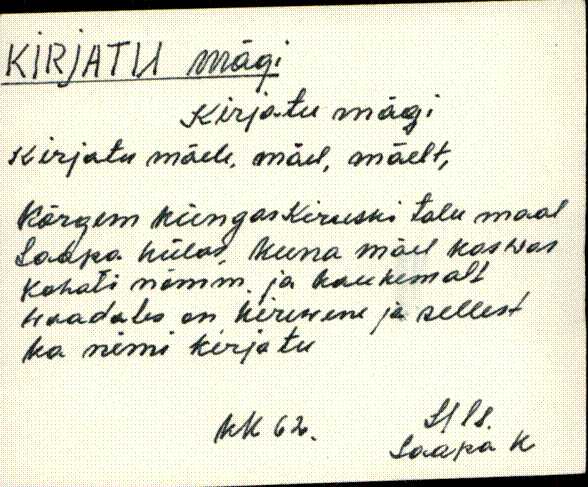 KIRJATU mägi
Kirjatu mägi
Kirjatu mäele, mäel, mäelt,
Kõrgem küngas Kiruski talu maal
Saapa külas, kuna mäel kaswas
kohati nõmm, ja kaugemalt
waadates on kiriwene ja sellest
ka nimi Kirjatu
KK 62.
Saapa K